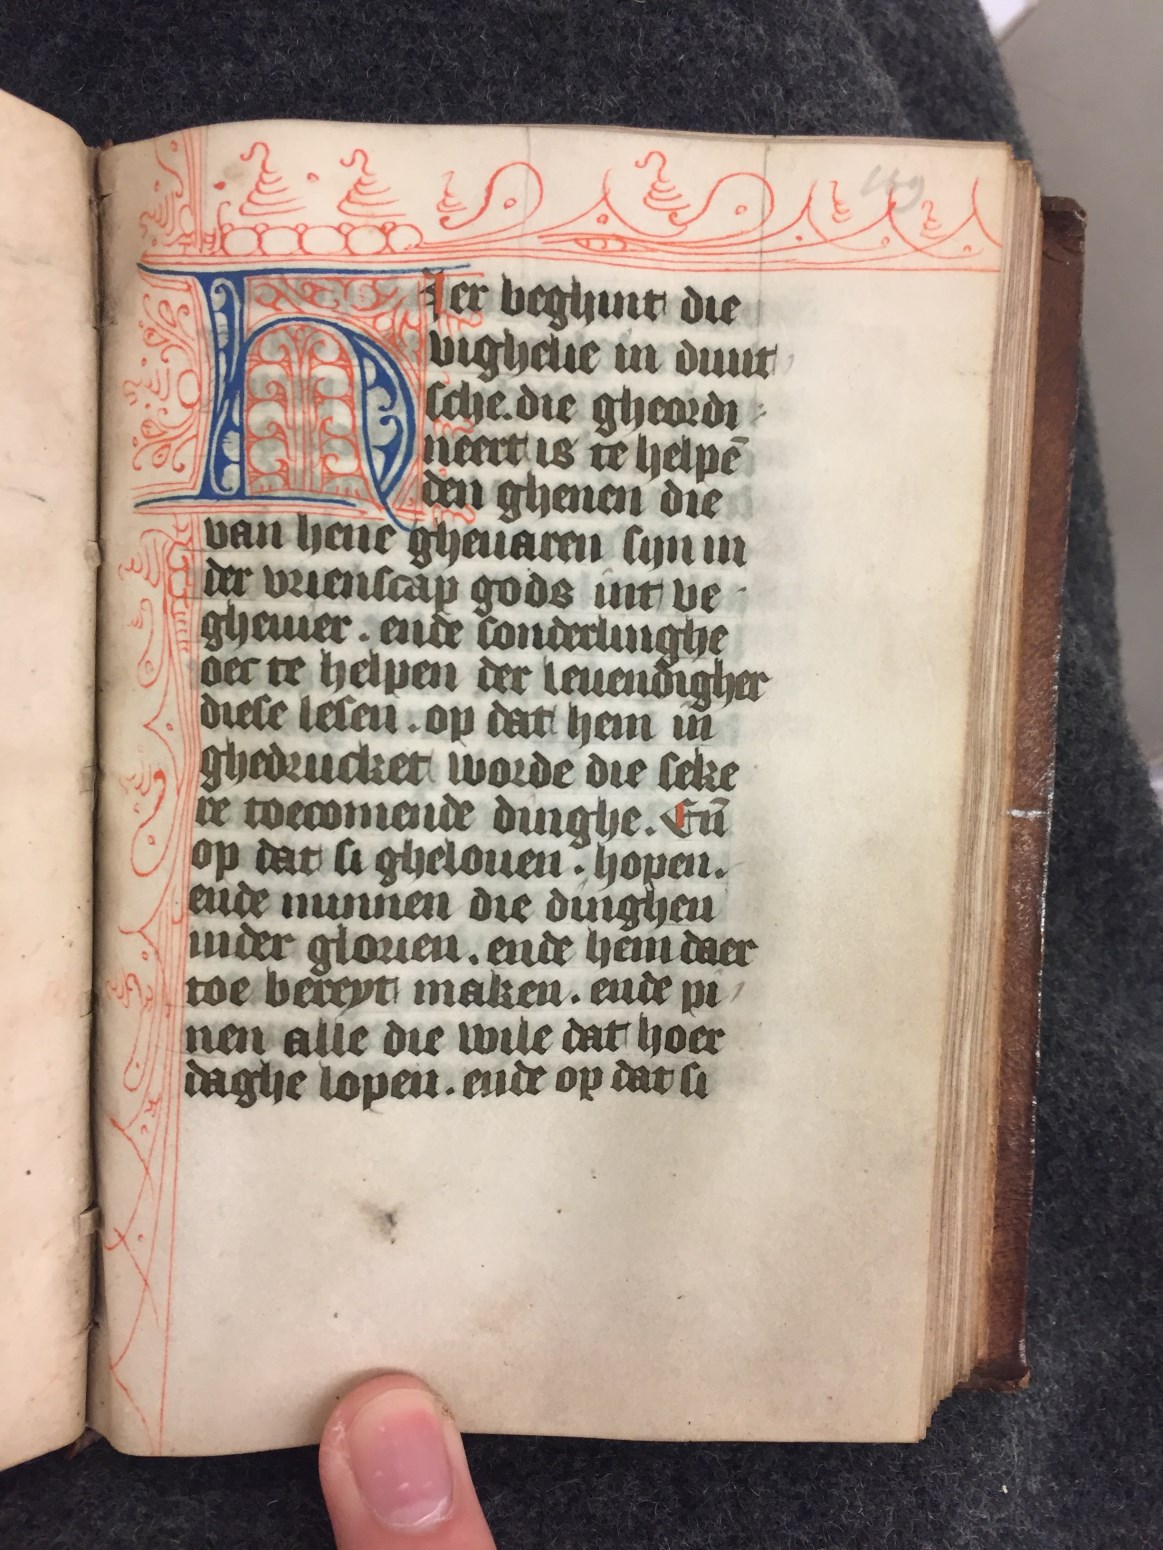 149
Hier beghint die
vighelie in duut
sche. die gheordi
neert is te helpē
den ghenen die
van hene gheuaren sijn in
der vrienscap gods int ve
gheuier. ende sonderlinghe
oec te helpen der leuendigher
diese lesen. op dat hem in
ghedrucket worde die seke
re toecomende dinghe. Eñ
op dat si ghelouen. hopen.
ende minnen die dinghen
inder glorien. ende hem daer
toe bereyt maken. ende pi
nen alle die wile dat hoer
daghe lopen. ende op dat si